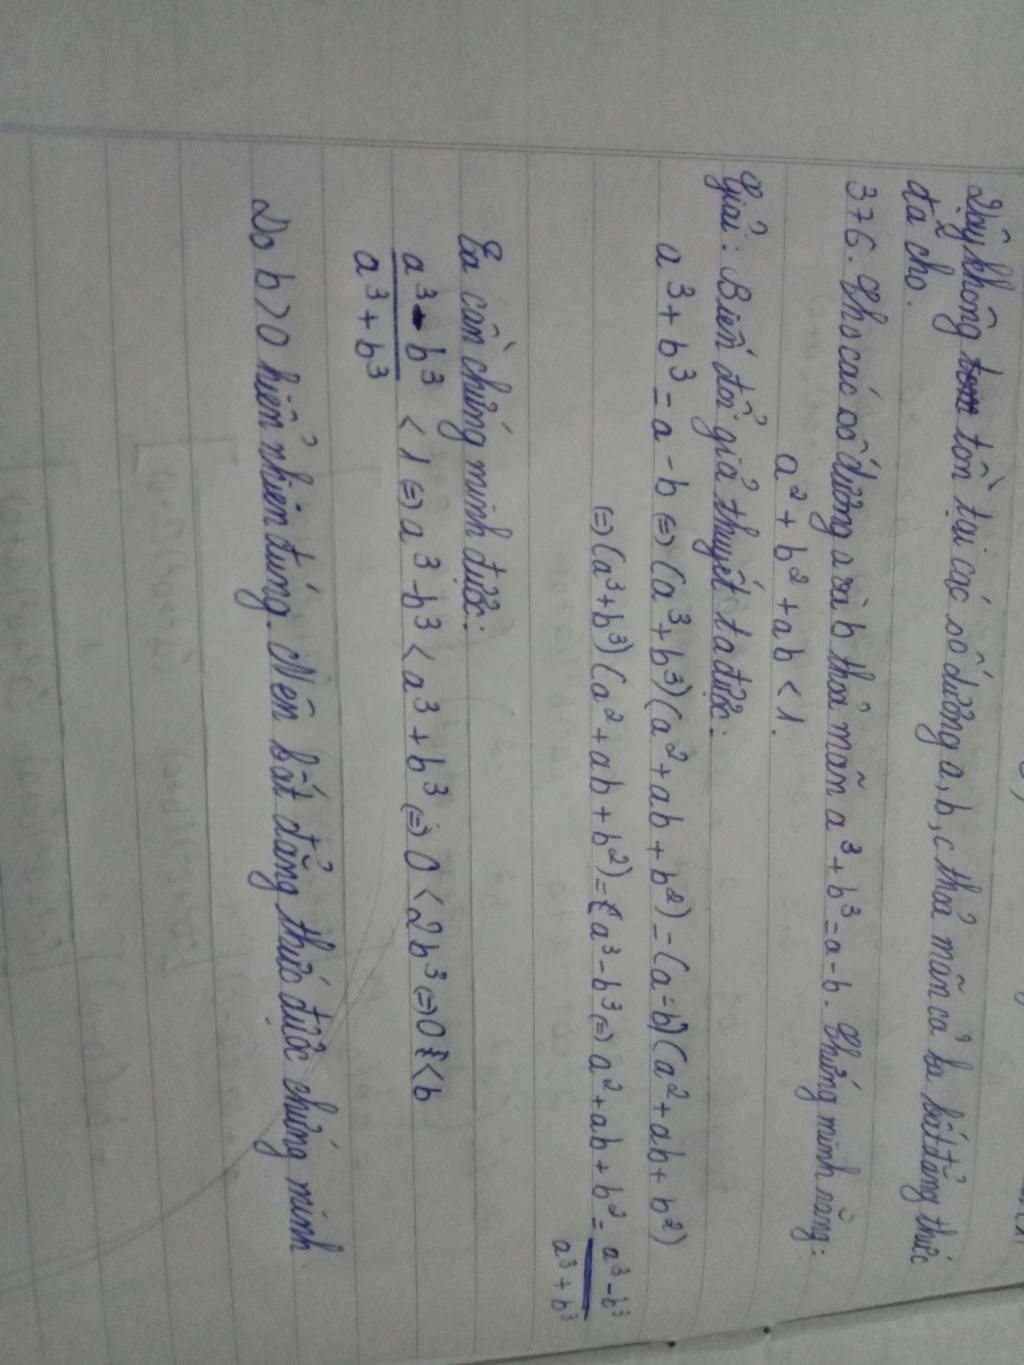 Vậy không tồn tại các số dương a, b, c thoả mãn cả ba bất đẳng thức
đã cho.
376. Cho các số dương a và b thoả mãn a³ + b³ = a - b. Chứng minh rằng:
a² + b² + ab < 1.
Giải: Biến đổi giả thuyết ta được:
a³ + b³ = a - b ⇔ (a³ + b³)(a² + ab + b²) = (a - b)(a² + ab + b²)
⇔ (a³ + b³)(a² + ab + b²) = a³ - b³ ⇔ a² + ab + b² = a³ - b³ / a³ + b³
Ta cần chứng minh được:
a³ - b³ / a³ + b³ < 1 ⇔ a³ - b³ < a³ + b³ ⇔ 0 < 2b³ ⇔ 0 < b
Do b > 0 hiển nhiên đúng. Nên bất đẳng thức được chứng minh.